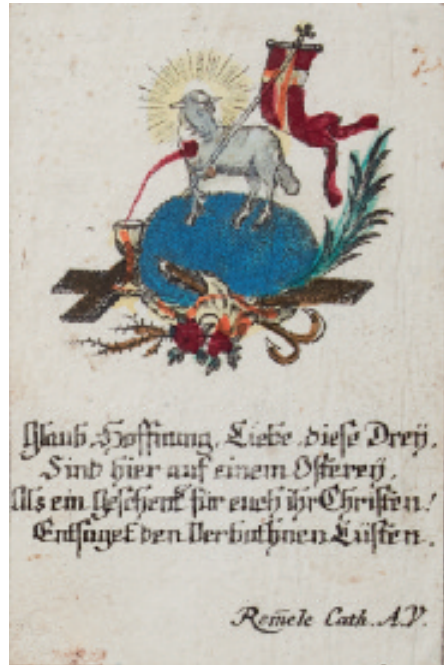 Glaub, Hoffnung, Liebe, diese Dreÿ,
Sind hier auf einem Ostereÿ,
Als ein Geschenk für euch ihr Christen!
Entsaget den Verbothnen Lüsten.
Rem̄ele Cath. A.V.